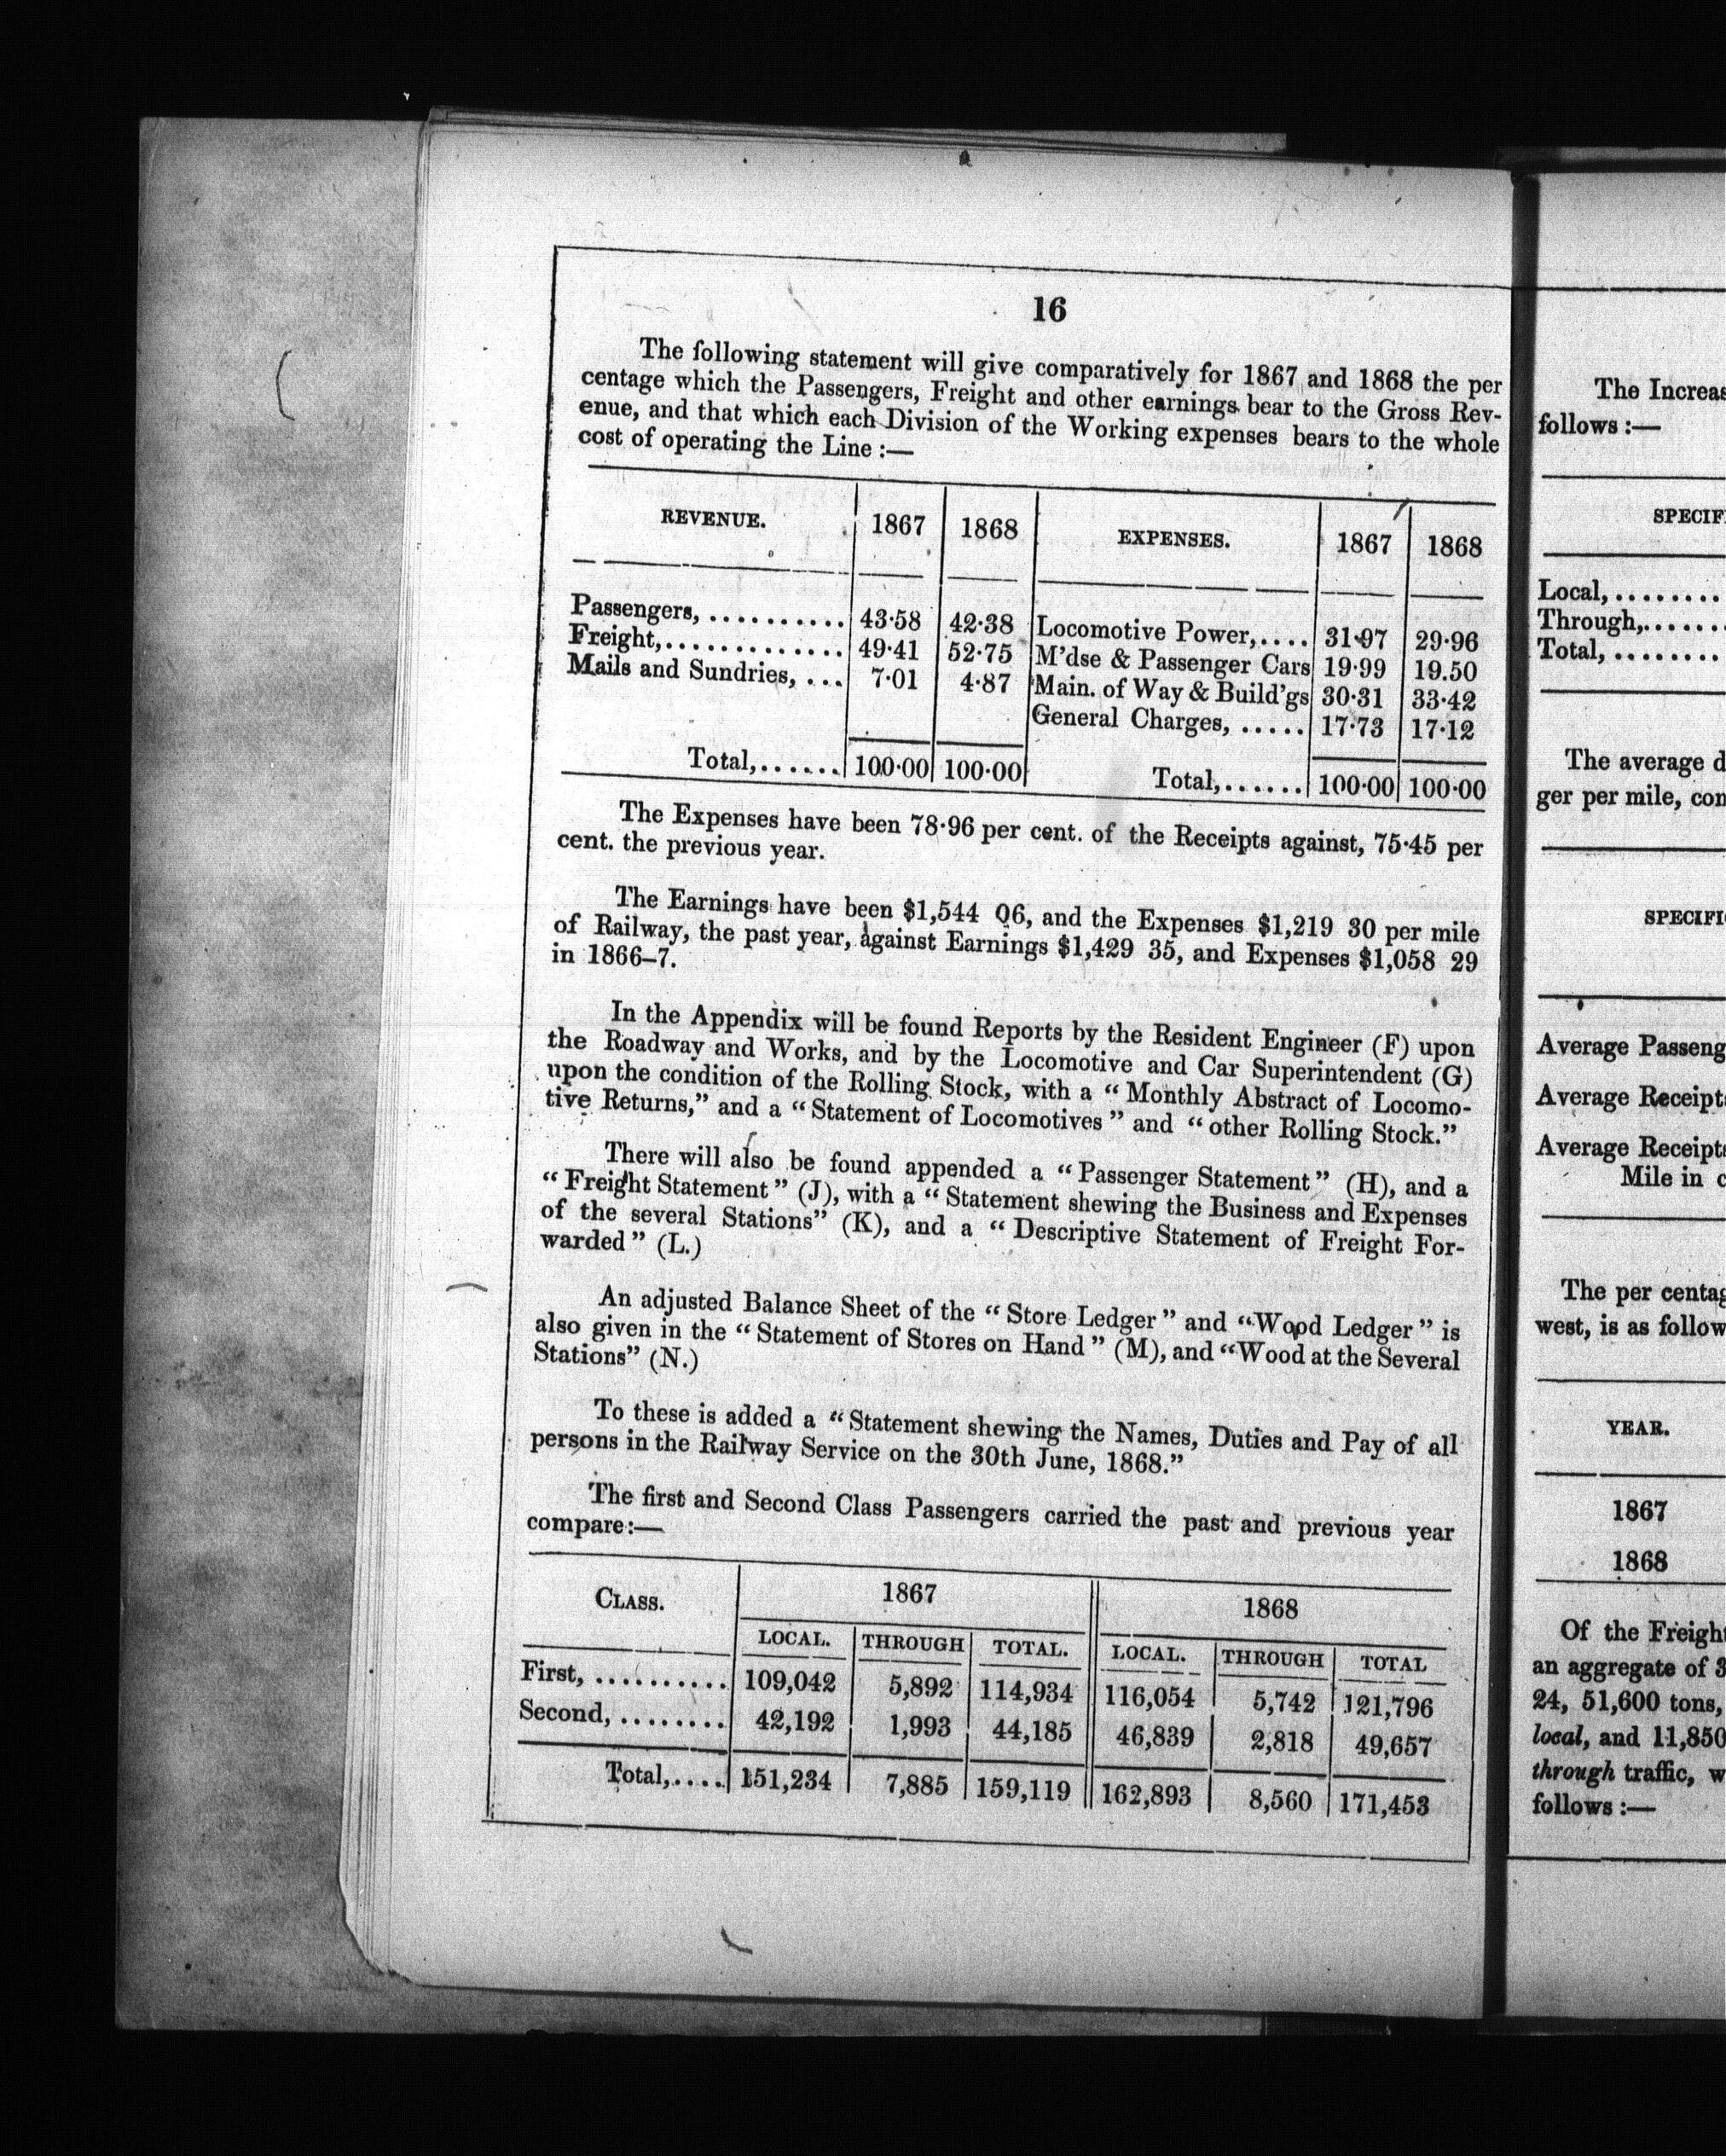 16
The following statement will give comparatively for 1867 and 1868 the per
centage which the Passengers, Freight and other earnings bear to the Gross Rev-
enue, and that which each Division of the Working expenses bears to the whole
cost of operating the Line :—
REVENUE. 1867 1868 EXPENSES. 1867 1868
Passengers, .......... 43·58 42·38 Locomotive Power,.... 31·97 29·96
Freight,............. 49·41 52·75 M'dse & Passenger Cars 19·99 19.50
Mails and Sundries, ... 7·01 4·87 Main. of Way & Build'gs 30·31 33·42
General Charges, ..... 17·73 17·12
Total,...... 100·00 100·00 Total,...... 100·00 100·00
The Expenses have been 78·96 per cent. of the Receipts against, 75·45 per
cent. the previous year.
The Earnings have been $1,544 06, and the Expenses $1,219 30 per mile
of Railway, the past year, against Earnings $1,429 35, and Expenses $1,058 29
in 1866–7.
In the Appendix will be found Reports by the Resident Engineer (F) upon
the Roadway and Works, and by the Locomotive and Car Superintendent (G)
upon the condition of the Rolling Stock, with a “ Monthly Abstract of Locomo-
tive Returns,” and a “ Statement of Locomotives ” and “ other Rolling Stock.”
There will also be found appended a “ Passenger Statement ” (H), and a
“ Freight Statement ” (J), with a “ Statement shewing the Business and Expenses
of the several Stations” (K), and a “ Descriptive Statement of Freight For-
warded ” (L.)
An adjusted Balance Sheet of the “ Store Ledger ” and “ Wood Ledger ” is
also given in the “ Statement of Stores on Hand ” (M), and “Wood at the Several
Stations” (N.)
To these is added a “ Statement shewing the Names, Duties and Pay of all
persons in the Railway Service on the 30th June, 1868.”
The first and Second Class Passengers carried the past and previous year
compare:—
CLASS. 1867 1868
LOCAL. THROUGH TOTAL. LOCAL. THROUGH TOTAL
First, .......... 109,042 5,892 114,934 116,054 5,742 121,796
Second, ........ 42,192 1,993 44,185 46,839 2,818 49,657
Total,.... 151,234 7,885 159,119 162,893 8,560 171,453
The Increas
follows :—
SPECIF
Local, ........
Through,.......
Total, ........
The average d
ger per mile, con
SPECIFI
Average Passeng
Average Receipts
Average Receipts
Mile in c
The per centag
west, is as follow
YEAR.
1867
1868
Of the Freight
an aggregate of 3
24, 51,600 tons,
local, and 11,850
through traffic, w
follows :—